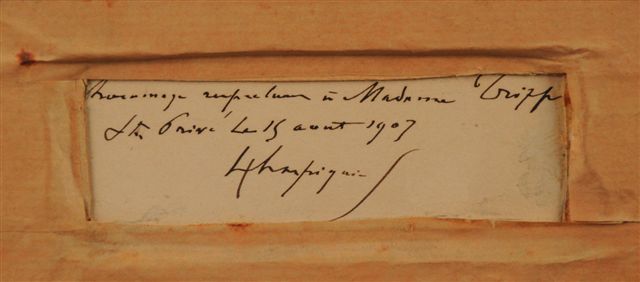 Hommage respectueux à Madame Tripp
St Privé Le 15 aout 1907
HHarpignies